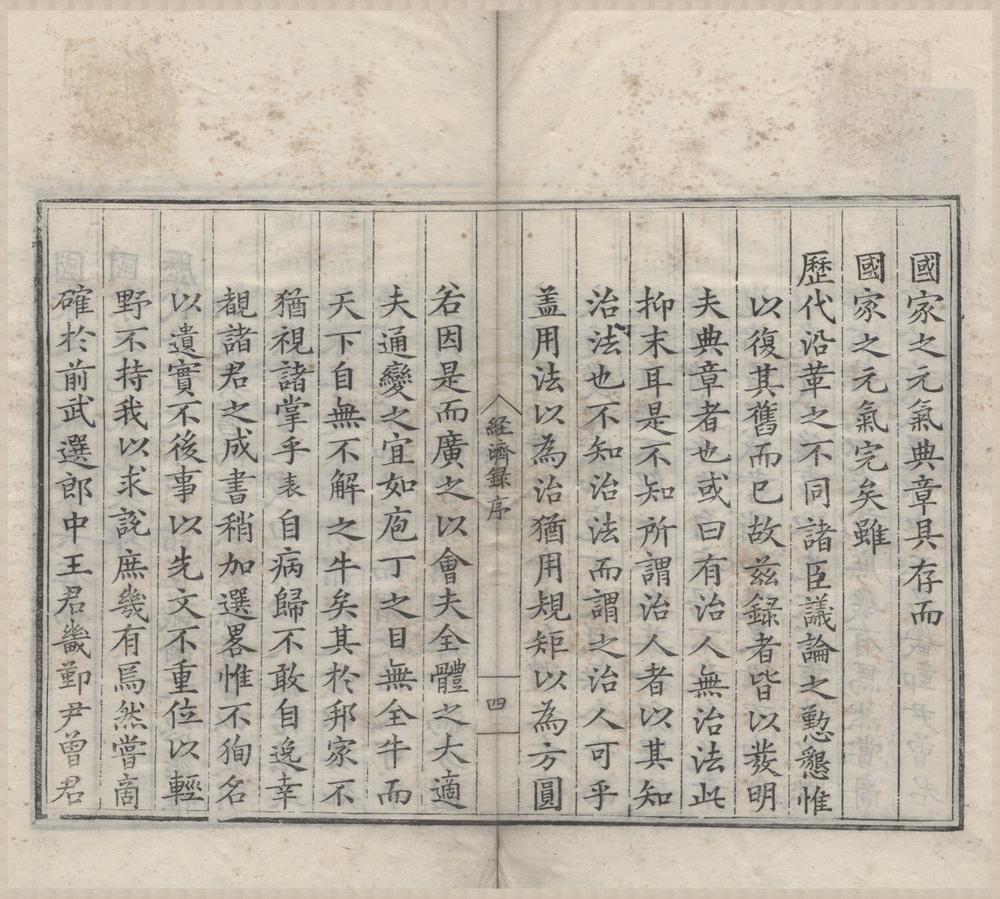 國家之元氣典章具存而
國家之元氣完矣雖
歷代沿革之不同諸臣議論之懃懇惟
以復其舊而已故茲録者皆以發明
夫典章者也或曰有治人無治法此
抑末耳是不知所謂治人者以其知
治法也不知治法而謂之治人可乎
盖用法以為治猶用規矩以為方圓
経濟録序
四
若因是而廣之以會夫全體之大適
夫通變之宜如庖丁之目無全牛而
天下自無不解之牛矣其於邦家不
猶視諸掌乎表自病歸不敢自逸幸
覩諸君之成書稍加選畧惟不狥名
以遺實不後事以先文不重位以輕
野不持我以求説庶幾有焉然嘗商
確於前武選郎中王君畿鄞尹曽君